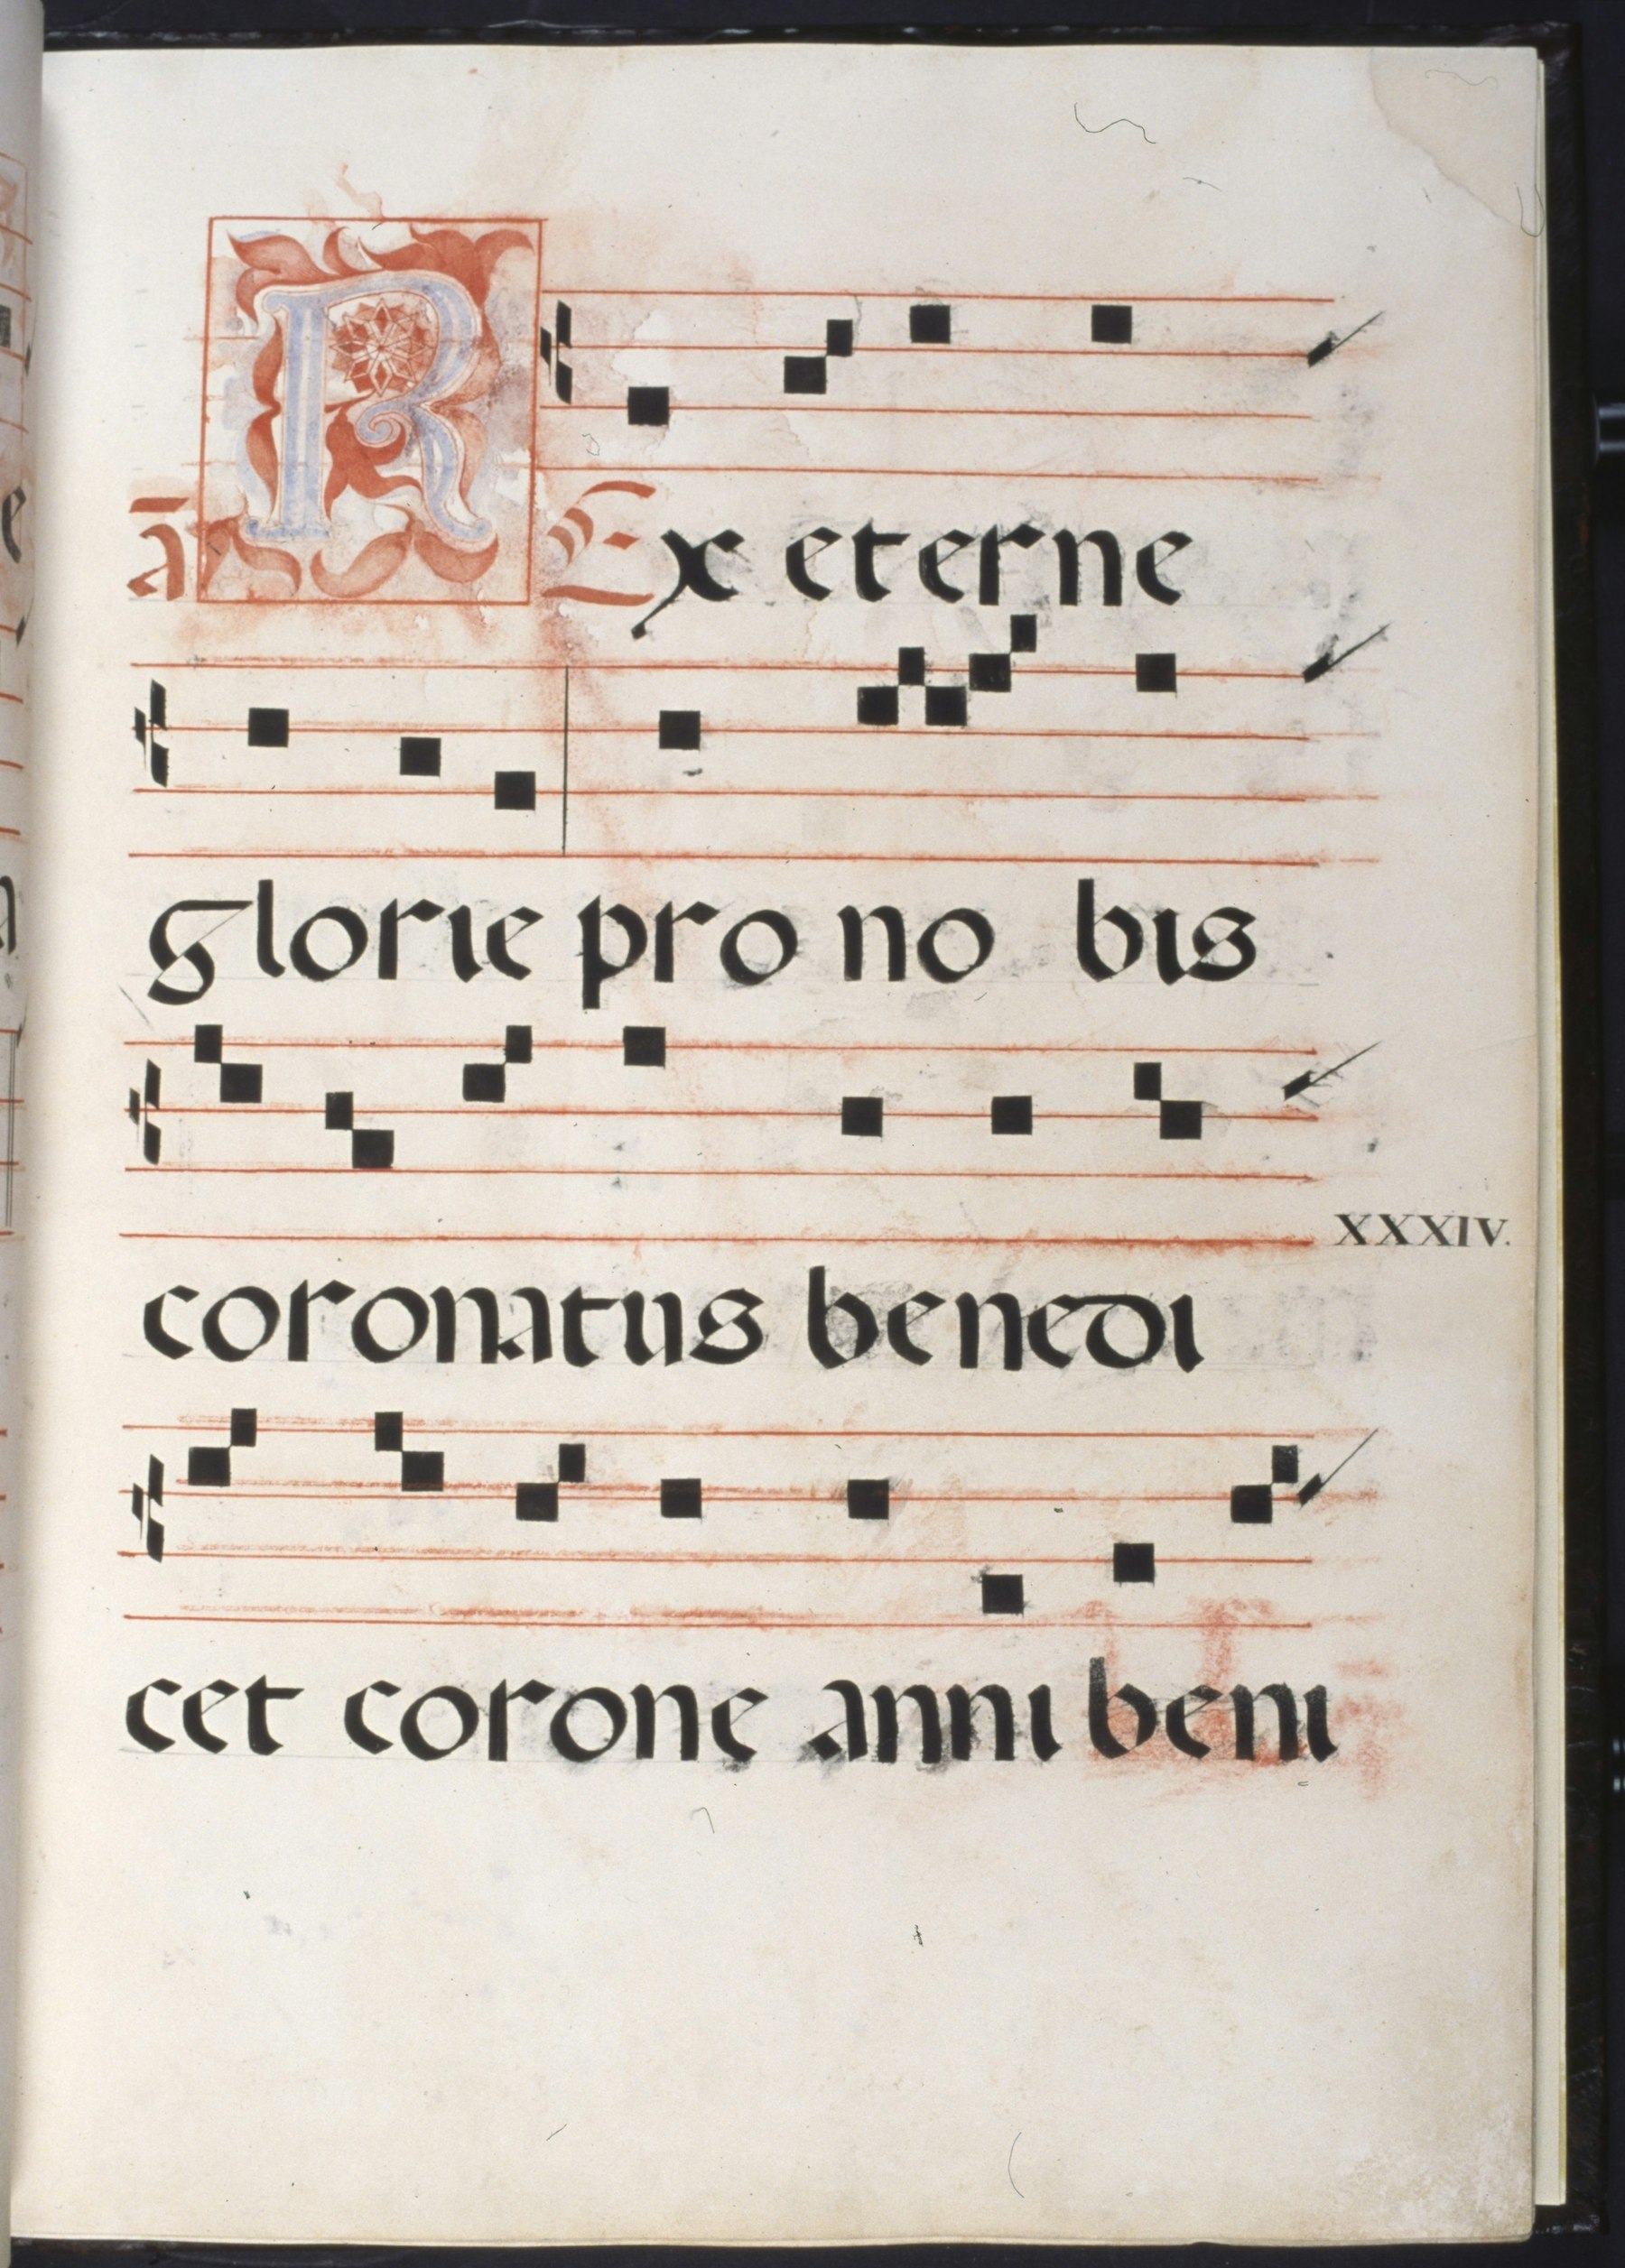 ā REx eterne
glorie pro no bis
XXXIV.
coronatus benedi
cet corone anni beni